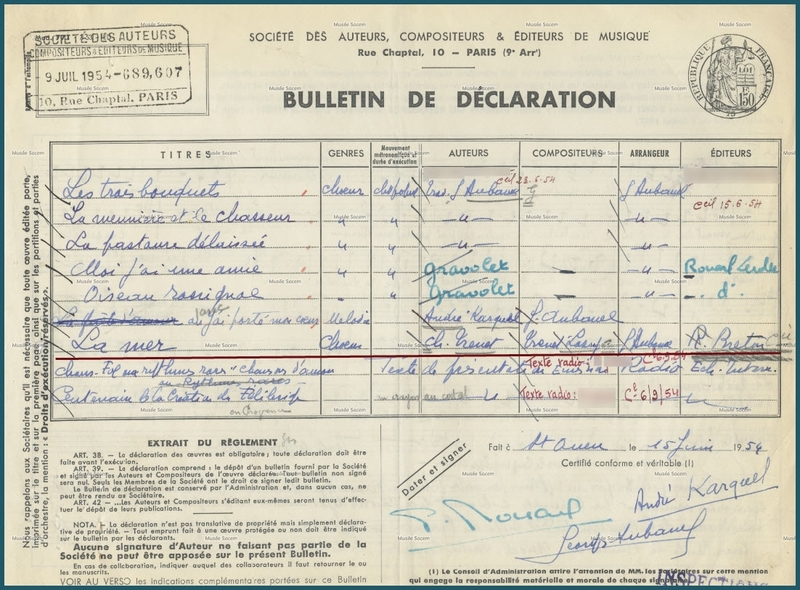 SOCIÉTÉ DES AUTEURS
COMPOSITEURS & ÉDITEURS DE MUSIQUE
9 JUIL 1954-689,607
10, Rue Chaptal, PARIS
SOCIÉTÉ DES AUTEURS, COMPOSITEURS & ÉDITEURS DE MUSIQUE
Rue Chaptal, 10 – PARIS (9e Arrt)
BULLETIN DE DÉCLARATION
RÉPUBLIQUE FRANÇAISE
LOI
150
TITRES GENRES Mouvement métronomique et durée d'exécution AUTEURS COMPOSITEURS ARRANGEUR ÉDITEURS
Les trois bouquets Choeur Trad. G Aubanel Cél 23.6.54 G Aubanel
Cél 15.6.54
La meunière et le chasseur " " " "
La pastoure délaissée " " " "
Moi j'ai une amie " " Gravolet — " Rouart Lerolle
Oiseau rossignol " " Gravolet — " d°
où j'ai porté mon coeur Melodie André Karquel G. Aubanel
La mer Choeur Ch. Trenet Trenet Lasry G Aubanel R. Breton
Texte de présentation Emissions Radio
Texte radio: Cé 6.9.54
en Rythmes rares
Centenaire de la Création du Félibrige Texte radio: Cé 6/9/54
Nous rappelons aux Sociétaires qu'il est nécessaire que toute œuvre éditée porte,
imprimée sur le titre et sur la première page ainsi que sur les partitions et parties
d'orchestre, la mention : « Droits d'exécution réservés. »
EXTRAIT DU RÈGLEMENT
ART. 38. — La déclaration des œuvres est obligatoire; toute déclaration doit être
faite avant l'exécution.
ART. 39. — La déclaration comprend : le dépôt d'un bulletin fourni par la Société
et signé par les Auteurs et Compositeurs de l'œuvre déclarée. Tout bulletin non signé
sera nul. Seuls les Membres de la Société ont le droit de signer ledit bulletin.
Le Bulletin de déclaration est conservé par l'Administration et, dans aucun cas, ne
peut être rendu au Sociétaire.
ART. 42 — ...Les Auteurs et Compositeurs s'éditant eux-mêmes seront tenus d'effec-
tuer le dépôt de leurs publications.
NOTA. — La déclaration n'est pas translative de propriété mais simplement déclara-
tive de propriété. — Tout emprunt fait à une œuvre protégée ou non doit être indiqué
sur le bulletin par les déclarants.
Aucune signature d'Auteur ne faisant pas partie de la
Société ne peut être apposée sur le présent Bulletin.
En cas de collaboration, indiquer auquel des collaborateurs il faut retourner le ou
les manuscrits.
VOIR AU VERSO les indications complémentaires portées sur ce Bulletin
Fait à St Ouen le 15 Juin 1954
Certifié conforme et véritable (1)
Dater et signer
André Karquel
P. Rouart
Georges Aubanel
(1) Le Conseil d'Administration attire l'attention de MM. les Sociétaires sur cette mention
qui engage la responsabilité matérielle et morale de chaque signataire
INSPECTION
Musée Sacem